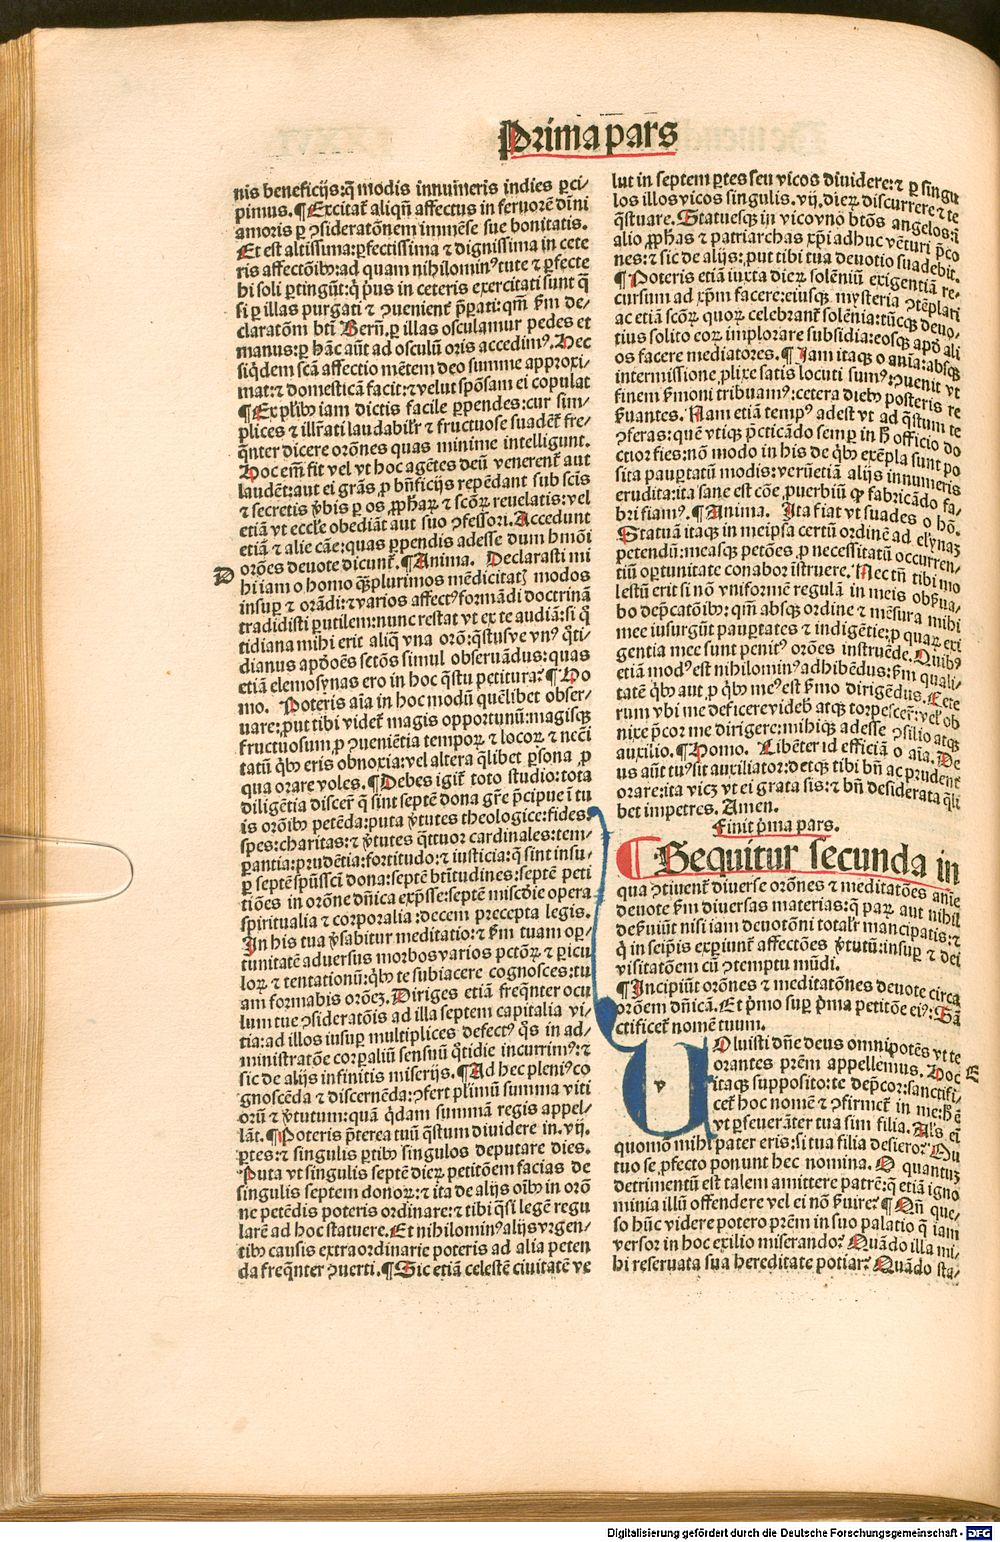 Prima pars
nis beneficijs:q̃ modis innumeris indies ꝑci-
pimus.¶Excitat̃ aliqñ affectus in feruorẽ diuini
amoris ꝑ ↄsideratõnem immẽse sue bonitatis.
Et est altissima:ꝑfectissima ⁊ dignissima in cete
ris affectõibꝰ:ad quam nihilominꝰ tute ⁊ ꝑfecte
hi soli ꝑtingũt:q̃ pͥus in ceteris exercitati sunt q̃
si ꝑ illas purgati ⁊ ↄuenient̃ p̃ꝑati:qm̃ ẜm de-
claratõm bti Bern̄.ꝑ illas osculamur pedes et
manus:ꝑ hãc aũt ad osculũ oris accedimꝰ.Hec
siq̃dem scã affectio mẽtem deo summe approxi-
mat:⁊ domesticã facit:⁊ velut spõsam ei copulat
¶Ex pl̃ibꝰ iam dictis facile ꝑpendes:cur sim-
plices ⁊ illr̃ati laudabilr̃ ⁊ fructuose suadẽt fre-
q̃nter dicere orõnes quas minime intelligunt.
Hoc em̃ fit vel vt hoc agẽtes deũ venerent̃ aut
laudẽt:aut ei grãs ꝓ bñficijs repẽdant sub scis
⁊ secretis ṽbis ꝑ os ꝓphaꝝ ⁊ scõꝝ reuelatis:vel
etiã vt eccl̃e obediãt aut suo ↄfessori.Accedunt
etiã ⁊ alie cãe:quas ꝑpendis adesse dum hmõi
orões deuote dicunt̃.¶Anima. Declarasti mi
D
hi iam o homo q̃ꝫplurimos mẽdicitatꝭ modos
insuꝑ ⁊ orãdi:⁊ varios affectꝰ formãdi doctrinã
tradidisti ꝑutilem:nunc restat vt ex te audiã:si q̃
tidiana mihi erit aliq̃ vna orõ:q̃stusve vnꝰ q̃ti-
dianus apd̾ oẽs sctõs simul obseruãdus:quas
etiã elemosynas ero in hoc q̃stu petitura?¶Ho
mo. Poteris aĩa in hoc modũ quẽlibet obser-
uare:put tibi videt̃ magis opportunũ:magisqꝫ
fructuosum,ꝓ ↄueniẽtia tempoꝝ ⁊ locoꝝ ⁊ necẽi
tatũ q̃bꝰ eris obnoxia:vel altera q̃libet ꝑsona ꝓ
qua orare voles.¶Debes igit̃ toto studio:tota
diligẽtia discer̃ q̃ sint septẽ dona gr̃e p̃cipue ĩ tu
is orõibꝰ petẽda:puta ṽtutes theologice:fides:
spes:charitas:⁊ ṽtutes q̃ttuor cardinales:tem-
ꝑantia:prudẽtia:fortitudo:⁊ iusticia:q̃ sint insu-
ꝑ septẽ spũssctĩ dona:septẽ btĩtudines:septẽ peti
tiões in orõne dñica exp̃sse:septẽ miscd̃ie opera
spiritualia ⁊ corporalia:decem precepta legis.
In his tua ṽsabitur meditatio:⁊ ẜm tuam oꝑ-
tunitatẽ aduersus morbos varios pctõꝝ ⁊ ꝑicu
loꝝ ⁊ tentationũ:q̃bꝰ te subiacere cognosces:tu
am formabis orõeꝫ.Diriges etiã freq̃nter ocu
lum tue ↄsideratõis ad illa septem capitalia vi-
tia:ad illos insuꝑ multiplices defectꝰ q̃s in ad-
ministratõe corꝑaliũ sensuũ q̃tidie incurrimꝰ:⁊
sic de alijs infinitis miserijs.¶Ad hec pleniꝰ co
gnoscẽda ⁊ discernẽda:ↄfert plimũ summa viti
orũ ⁊ ṽtutum:quã q̃dam summã regis appel-
lãt.¶Poteris p̃terea tuũ q̃stum diuidere in.vij.
ꝑtes:⁊ singulis ꝑtibꝰ singulos deputare dies.
Puta vt singulis septẽ dieꝝ petitõem facias de
singulis septem donoꝝ:⁊ ita de alijs oĩbꝰ in orõ
ne petẽdis poteris ordinare:⁊ tibi q̃si legẽ regu
larẽ ad hoc statuere.Et nihilominꝰ alijs vrgen-
tibꝰ causis extraordinarie poteris ad alia peten
da freq̃nter ↄuerti.¶Sic etiã celestẽ ciuitatẽ ve
lut in septem ꝑtes seu vicos diuidere:⁊ ꝑ singu
los illos vicos singulis.vij.dieꝝ discurrere ⁊ te
q̃stuare.Statuesqꝫ in vico vno btõs angelos:ĩ
alio ꝓphas ⁊ patriarchas xp̃i adhuc vẽturi p̃co
nes:⁊ sic de alijs:put tibi tua deuotio suadebit.
¶Poteris etiã iuxta dieꝝ solẽniũ exigentiã re-
cursum ad xp̃m facere:eiusqꝫ mysteria ↄtẽplari
ac etiã scõꝝ quoꝝ celebrant̃ solẽnia:tũcqꝫ deuo-
tius solito eoꝝ implorare subsidia:eosqꝫ apd̾ ali
os facere mediatores.¶Iam itaqꝫ o aĩa:absqꝫ
intermissione ꝓlixe satis locuti sumꝰ:ↄuenit vt
finem ẜmoni tribuamꝰ:cetera diebꝰ posteris re
ẜuantes.Nam etiã tempꝰ adest vt ad q̃stum te
ↄferas:quẽ vtiqꝫ p̃cticãdo semꝑ in h̃ officio do
ctior fies:nõ modo in his de q̃bꝰ exẽpla sunt po
sita pauꝑtatũ modis:verũetiã alijs innumeris
erudita:ita sane est cõe ꝓuerbiũ ꝙ fabricãdo fa-
bri fiamꝰ.¶Anima. Ita fiat vt suades o hõ.
Statuã itaqꝫ in meipsa certũ ordinẽ ad elynaꝫ
petendũ:measqꝫ petões ꝓ necessitatũ occurren-
tiũ oꝑtunitate conabor ĩstruere.Nec tñ tibi mo
lestũ erit si nõ vniformẽ regulã in meis obẜua-
bo dep̃catõibꝰ:qm̃ absqꝫ ordine ⁊ mẽsura mihi
mee insurgũt pauꝑtates ⁊ indigẽtie:ꝓ quaꝝ exi
gentia mee sunt penitꝰ orões instruẽde.Quibꝰ
etiã modꝰ est nihilominꝰ adhibẽdus:ẜm quali-
tatẽ q̃bꝰ aut ꝓ q̃bꝰ meꝰ est ẜmo dirigẽdus.Cete
rum vbi me deficere videb̃ atqꝫ torpescer̃:vel̾ ob
nixe p̃cor me dirigere:mihiqꝫ adesse ↄsilio atqꝫ
auxilio.¶Homo. Libẽter id efficiã o aĩa.De
us aũt tuꝰ sit auxiliator:detqꝫ tibi bñ ac prudent̃
orare:ita vicꝫ vt ei grata sis:⁊ bñ desiderata q̃li
bet impetres. Amen.
Finit pͥma pars.
¶Sequitur secunda in
qua ↄtinent̃ diuerse orõnes ⁊ meditatões aĩe
deuote ẜm diuersas materias:q̃ paꝝ aut nihil
deẜuiũt nisi iam deuotõni totalr̃ mancipatis:⁊
q̃ in seip̃is exꝑiunt̃ affectões ṽtutũ:insuꝑ ⁊ dei
visitatõem cũ ↄtemptu mũdi.
¶Incipiũt orõnes ⁊ meditatõnes deuote circa
orõem dñicã.Et pͥmo suꝑ pͥma petitõe eiꝰ:Sã
ctificet̃ nomẽ tuum.
VOluisti dñe deus omnipotẽs vt te
orantes prẽm appellemus.Hoc
E
itaqꝫ supposito:te dep̃cor:sanctifi-
cet̃ hoc nomẽ ⁊ ↄfirmet̃ in me:h̃ ẽ
vt ꝑseuerãter tua sim filia.Al̾s eĩ
quomõ mihi pater eris:si tua filia desiero?Qu
tuo se ꝓfecto ponunt hec nomina.O quantuꝫ
detrimentũ est talem amittere patrẽ:q̃ etiã igno
minia illũ offendere vel ei nõ ẜuire?¶Qñ que-
so hũc videre potero prẽm in suo palatio q̃ iam
versor in hoc exilio miserando?Quãdo illa mi-
hi reseruata sua hereditate potiar?Quãdo sta-
Digitalisierung gefördert durch die Deutsche Forschungsgemeinschaft - DFG